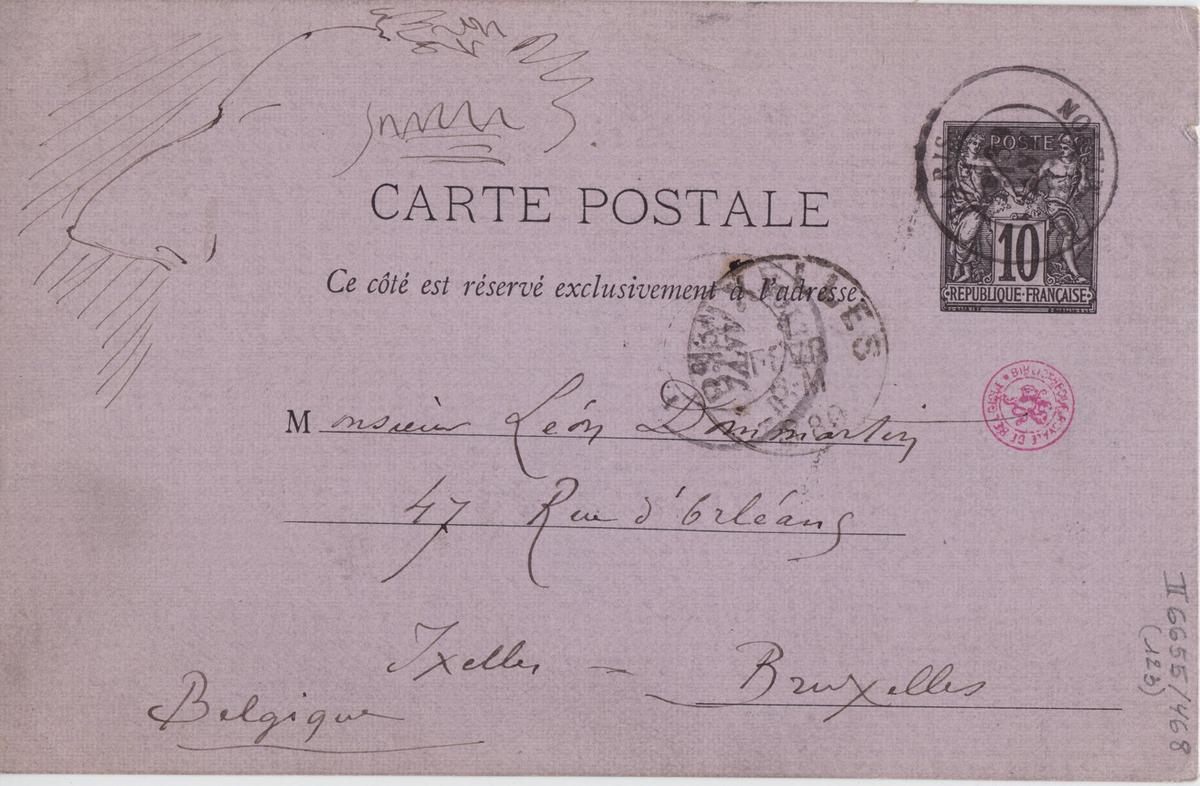 POSTE
10
REPUBLIQUE·FRANÇAISE
CARTE POSTALE
Ce côté est réservé exclusivement à l'adresse.
Monsieur Léon Dommartin
47 Rue d'Orléans
Ixelles – Bruxelles
Belgique
BIBLIOTHEQUE ROYALE DE BELGIQUE
II 6655/468
(123)